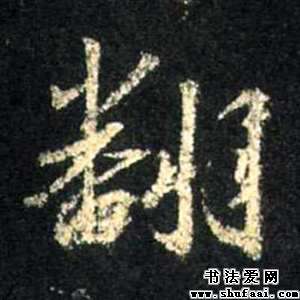 翻
书法爱网
www.shufaai.com